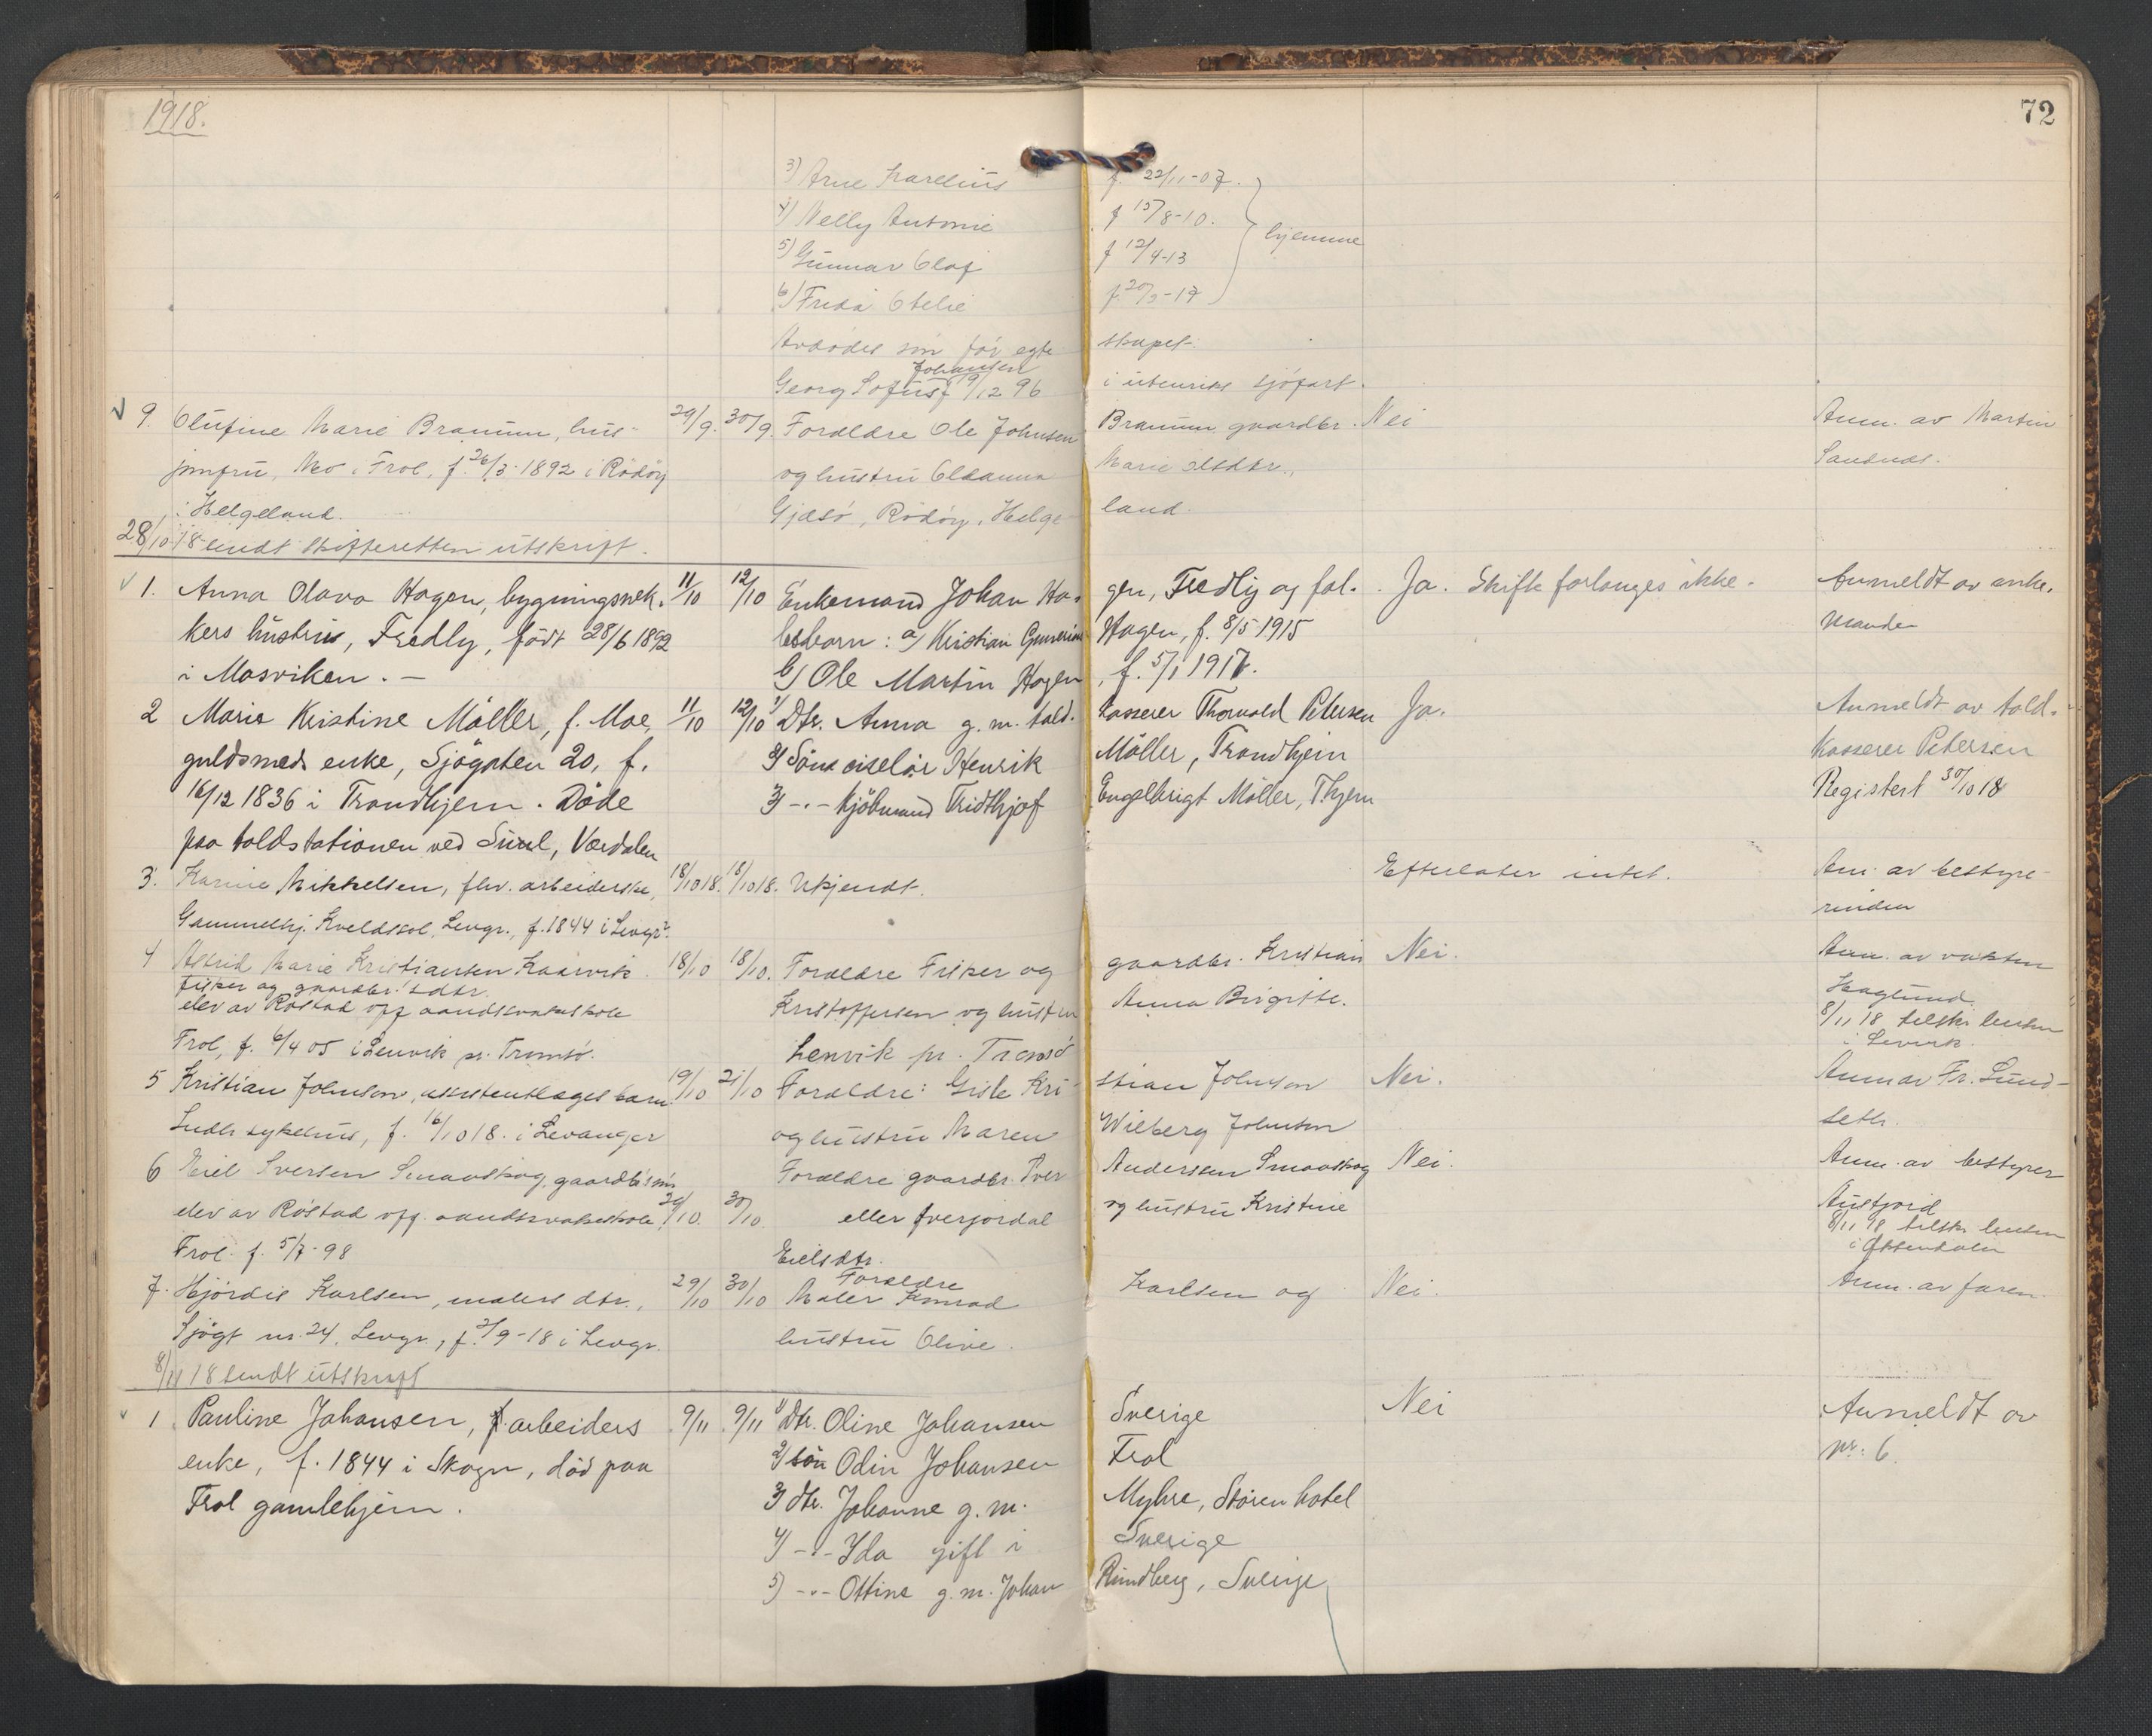 1918.
72
3) Arne Karelius f. 22/11-07.
4) Nelly Antonie f 15/8-10. hjemme
5) Gunnar Olaf f 12/4-13
6) Frida Otelie f. 20/5-17
Avdødes søn før egte skapet.
Johansen
Georg Sofus f 19/12 96 i utenriks sjøfart.
9. Olufine Marie Bramm, hus- 29/9. 30/9. Forældre Ole Johnsen Bramm gaardbr. Nei Anm. av Martin
jomfru, Mo i Frol, f. 26/3-1892 i Rødøy og hustru Oldanna Marie Olsdtr., Sandnes.
i Helgeland. Gjæsø, Rødøy, Helge- land.
28/10 18 sendt skifteretten utskrift.
1. Anna Olava Hagen, bygningssnek- 11/10 12/10 Enkemand Johan Ha- gen, Fredly og føl. Ja. Skifte forlanges ikke. Anmeldt av enke-
kers hustru, Fredly, født 28/6 1892 lesbarn: a) Kristian Hagen, f. 8/5 1915 manden
i Mosviken. — b) Ole Martin Hagen, f. 5/1 1917.
2 Marie Kristine Möller, f. Moe, 11/10 12/10 1) Dtr. Anna g. m. told- kasserer Thorvald Petersen Ja. Anmeldt av told-
guldsmeds enke, Sjøgaten 20, f. 2) Søn ciselør Henrik Möller, Trondhjem kasserer Petersen
16/12 1836 i Trondhjem. Døde 3) -"- kjøbmand Fridthjof Engelbrigt Möller, Thjem Registert 30/10 18
paa toldstationen ved Suul, Værdalen
3. Karine Mikkelsen, fhv. arbeiderske, 18/10 18. 18/10 18. Ukjendt. Efterlater intet. Anm. av bestyre-
Gammelhj. Kveldssol, Levgr., f. 1844 i Levgr. rinden
4 Astrid Marie Kristiansen Kaarvik 18/10 18/10. Forældre Fisker og gaardbr. Kristian Nei. Anm. av vakten
fisker og gaardbr.'s dtr.
elev av Røstad off aandssvakeskole Kristoffersen og hustru Anna Birgitte. Haglund.
8/11 18 tilskr. lensm
Frol, f. 6/4 05 i Lenvik pr. Tromsø. Lenvik pr. Tromsø i Lenvik.
5 Kristian Johnson, assistentlæges barn 19/10 21/10 Forældre: Gisle Kri- stian Johnson Nei. Anm av Fr. Lund-
Indh. sykehus, f. 16/10 18. i Levanger og hustru Maren Wilberg Johnson seth.
6 Eiel Iversen Smaaskog, gaardbr's søn Forældre gaardbr. Iver Andersen Smaaskog Nei. Anm. av bestyrer
elev av Røstad off. aandssvakeskole, 29/10. 30/10 eller Iverjordal og hustru Kristine Austfjord
8/11 18 tilskr. lensm
Frol. f. 5/7-98 Eielsdtr. i Øksendalen
7. Hjørdis Karlsen, malers dtr., 29/10 30/10 Forældre Maler Konrad Karlsen og Nei. Anm. av faren.
Sjøgt nr. 24, Levgr., f. 2/9-18 i Levgr. hustru Olive.
8/11 18 sendt utskrift
1 Pauline Johansen, f. arbeiders 9/11 9/11 1) Dtr. Oline Johansen Sverige Nei Anmeldt av
enke, f. 1844 i Skogn, død paa 2) søn Odin Johansen Frol nr: 6.
Frol gamlehjem. 3) dtr. Johanne g. m. Myhre, Støren hotel
4) -"- Ida gift i Sverige
5) -"- Ottine g. m. Johan Rundberg, Sverige